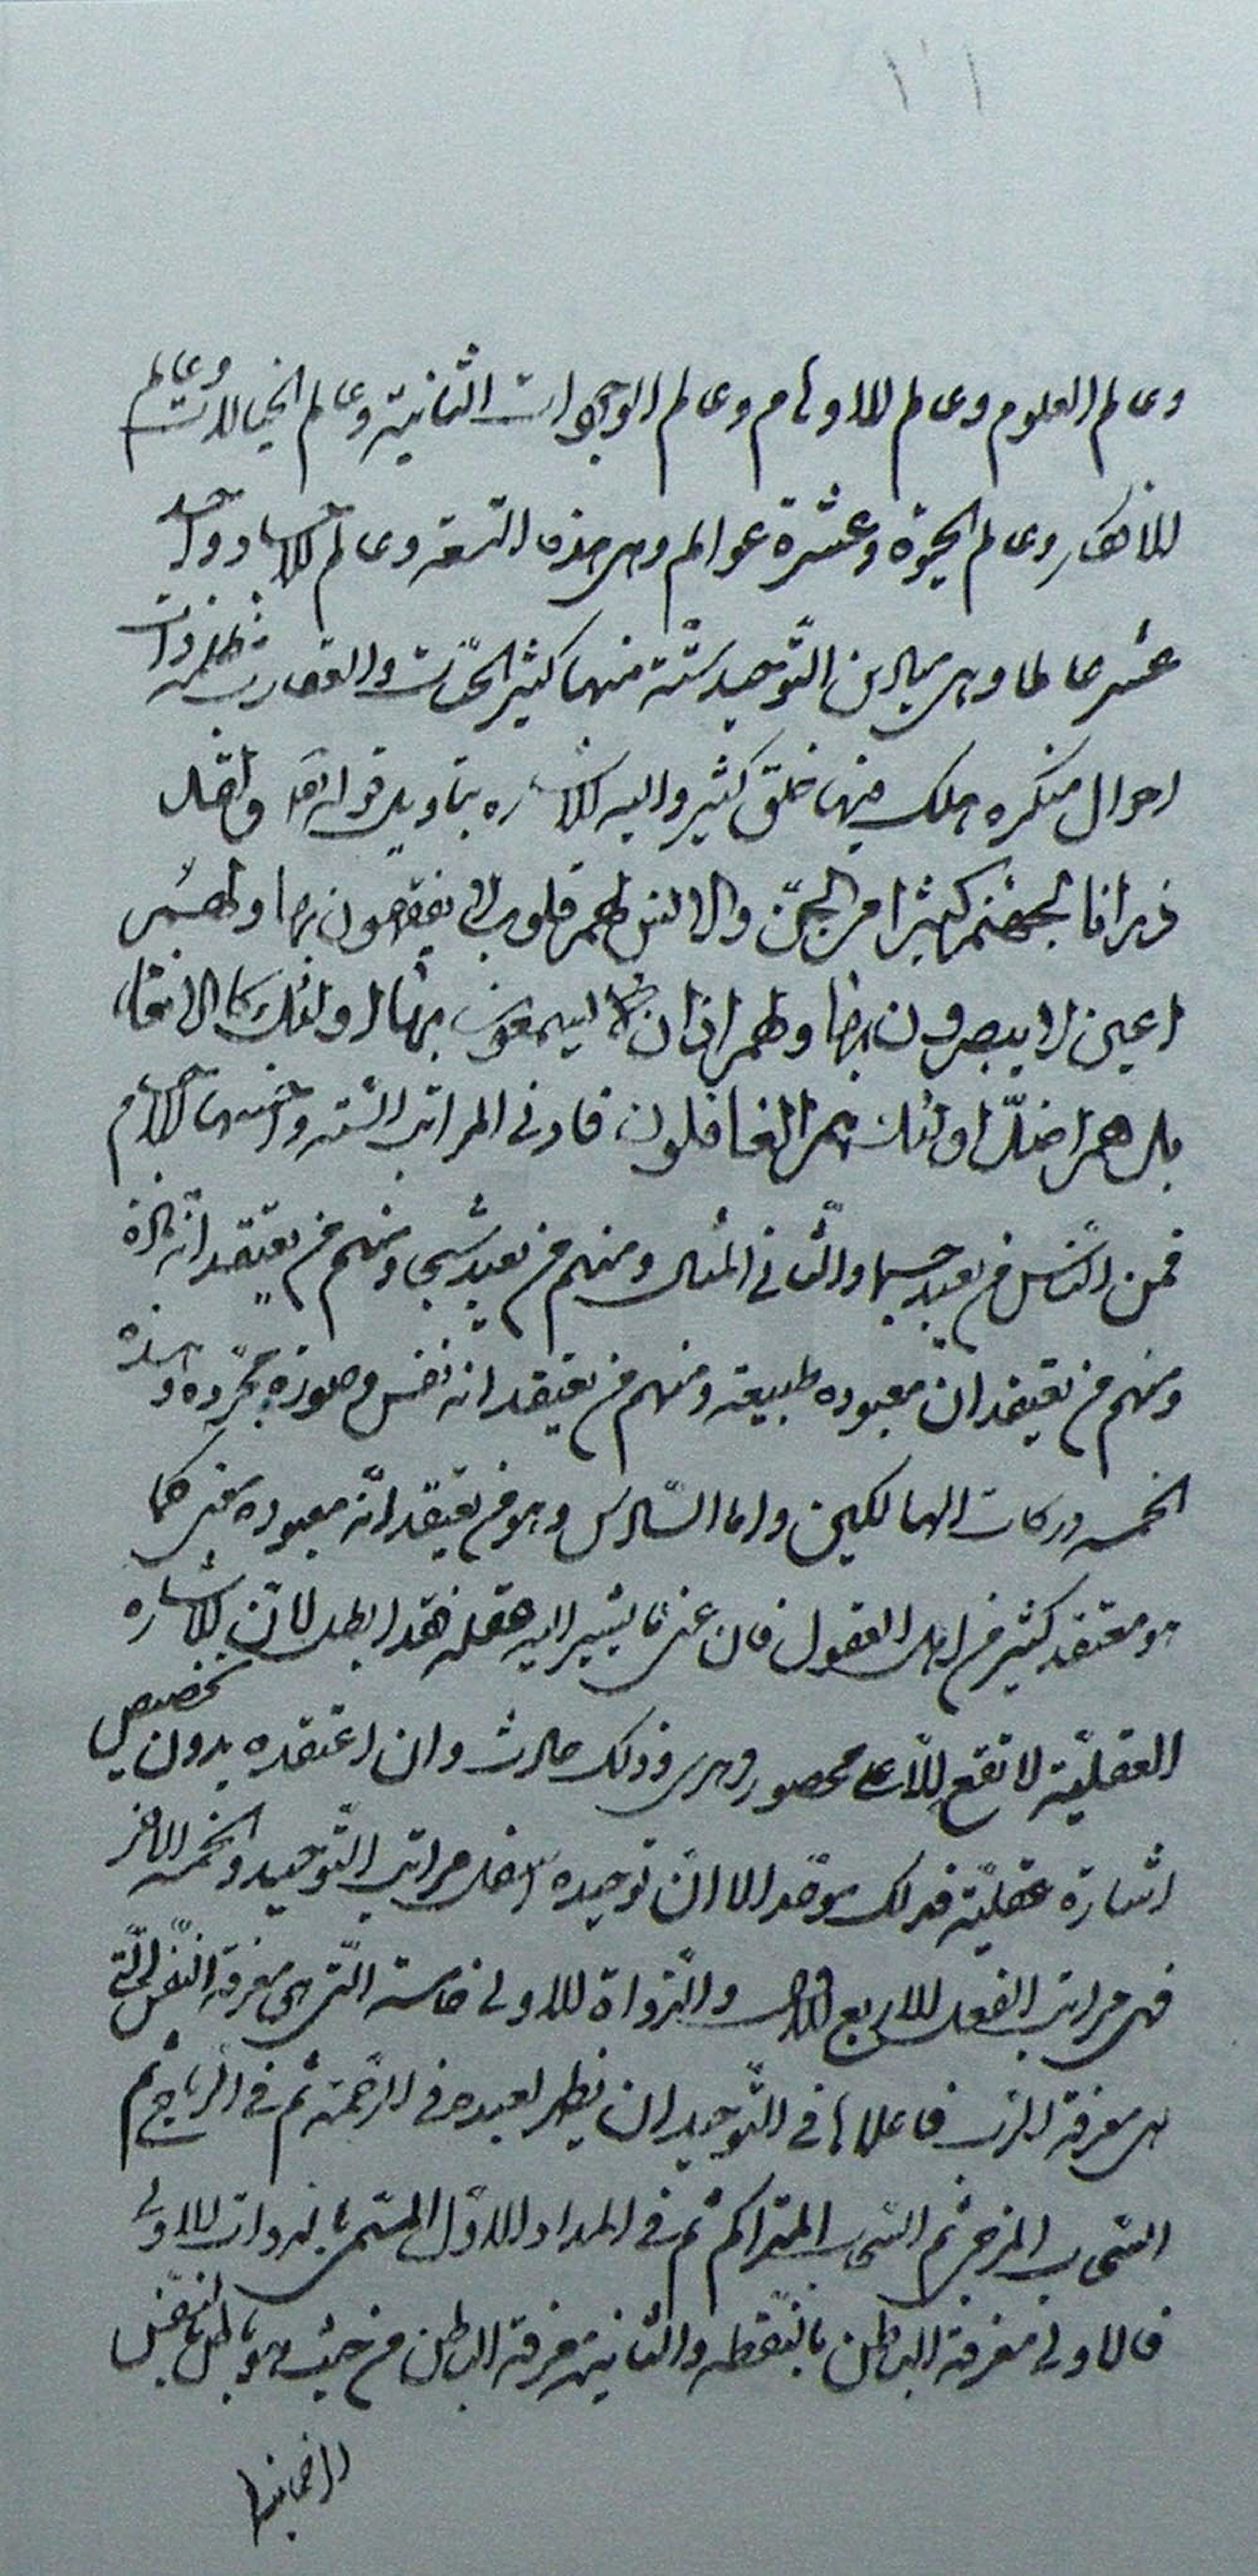 وعالم العلوم وعالم الاوهام وعالم الوجودات الثانية وعالم الخيالات وعالم
الافكار وعالم الحيوة وعشرة عوالم وهى هذه التسعة وعالم الاجساد واحد
عشر عالما وهى ميادين التوحيد ستة منها كثير الحيّات والعقارب مظلمة ذات
احوال منكره هلك فيها خلق كثير واليه الاشاره بتاويل قوله تعا ولقد
ذرانا لجهنم كثيرا من الجنّ والانس لهم قلوب لا يفقهون بها ولهم
اعين لا يبصرون بها ولهم اذان لا يسمعون بها اولئك كالانعام
بل هم اضلّ اولئك هم الغافلون فادنى المراتب الستّه واخسّها الاجسام
فمن النّاس من يعبد جسما والثّانى المثال ومنهم من يعبد شبحا ومنهم من يعتقد انّه مادّة
ومنهم من يعتقد ان معبوده طبيعة ومنهم من يعتقد انه نفس وصورة مجرّده وهذه
الخمسه دركات الهالكين واما السّادس وهو من يعتقد انّه معبوده معنى كما
هو معتقد كثير من اهل العقول فان عنى ما يشير اليه عقله فقد ابطل لانّ الاشاره
العقليّة لا تقع الّا على محصور وهرى وذلك حادث وان اعتقده بدون تخصيص
اشارة عقليّة فذلك موحّد الا انّ توحيده اسفل مراتب التّوحيد والخمسه الاخر
فهى مراتب الفعل الاربع الاول والدّواة الاولى خامسة الّتى هى معرفة النّفس الّتى
هى معرفة الرّب فاعلاها فى التّوحيد ان يظهر لعبده فى الرّحمة ثم فى الرّياح ثم
السّحاب المزجى ثم السّحاب المتراكم ثم فى المداد الاوّل المسمّى بالدوات الاولى
فالاولى معرفة الباطن بالنّقطه والثانية معرفة الباطن من حيث هو باطن النّفس